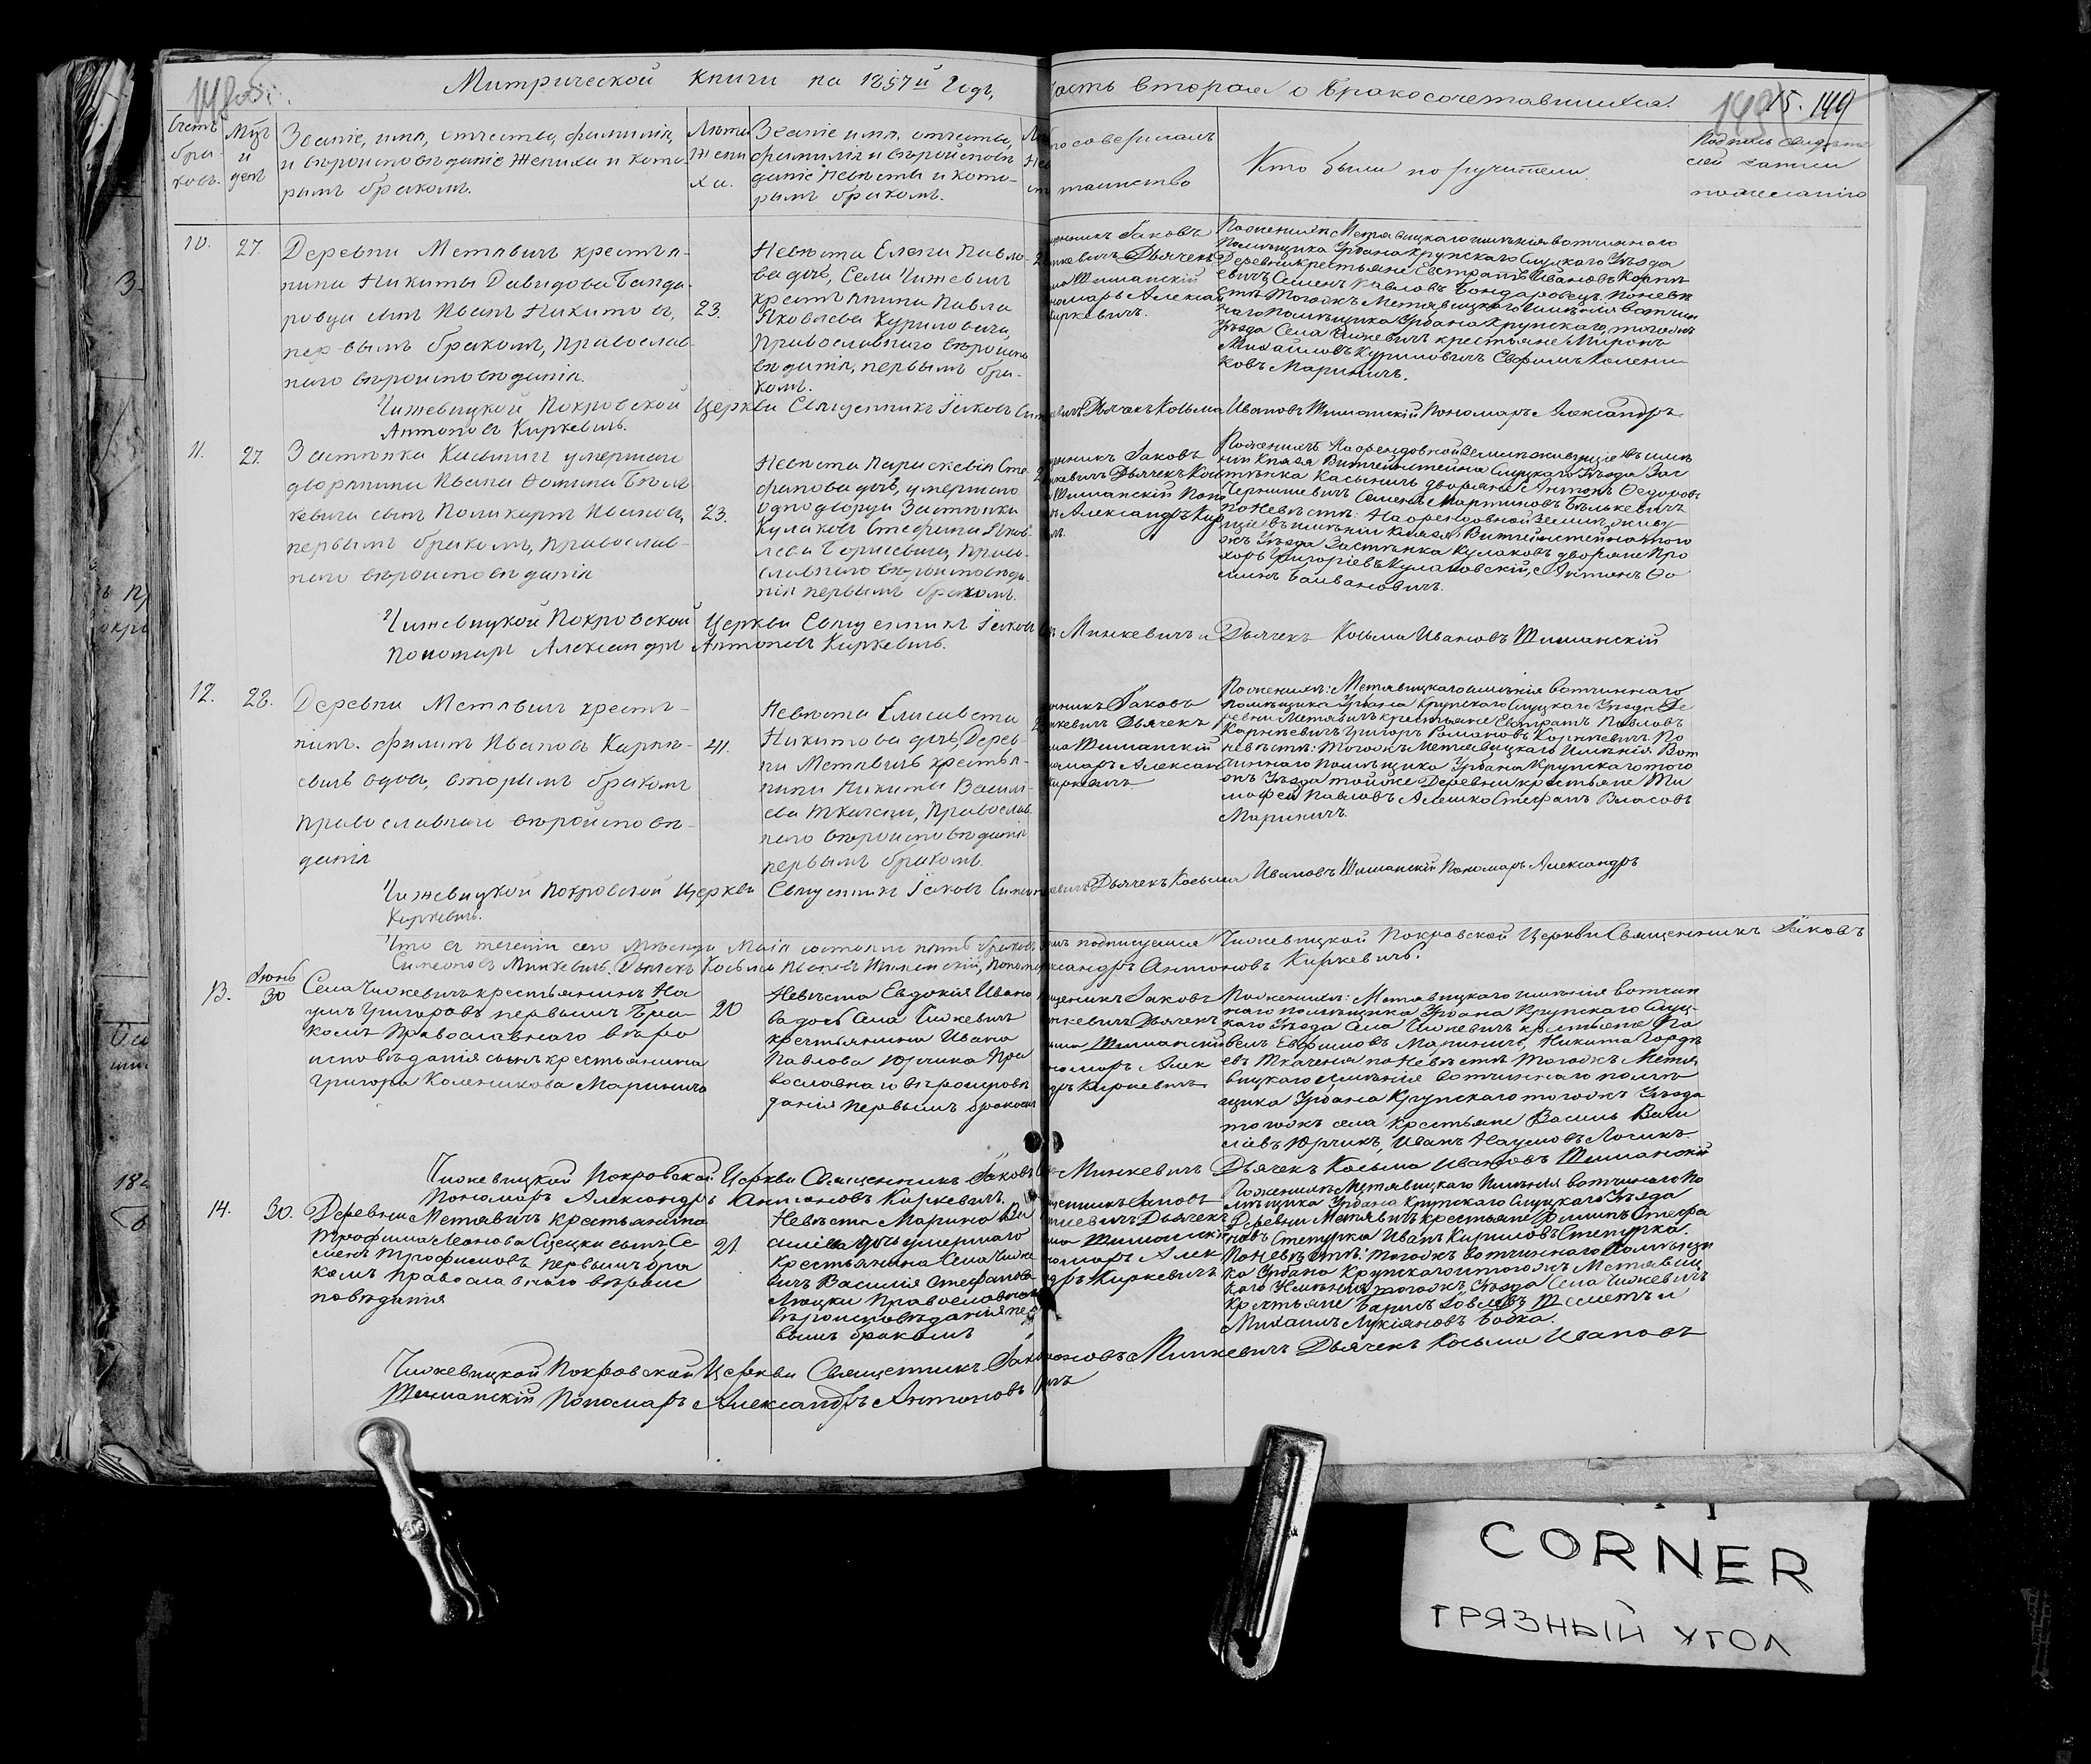 Митрической книги на 1857й Годъ,
Часть вторая о Бракосочетавшихся.
15. 149
Счетъ браковъ.
Мцъ и день
Званіе, имя, отчество, фамилія,
и вѣроисповѣданіе жениха и кото
рымъ бракомъ.
Лѣта
жени
ха.
Званіе имя, отчество,
фамилія и вѣроисповѣ
даніе невѣсты и кото-
рымъ бракомъ.
совершалъ
таинство
Кто были поручители.
Подпись
записи
по желанію
10.
27.
Деревни Метявичъ крестья-
нина Никиты Давидова Бонда
ровца сынъ Иванъ Никитовъ,
первымъ бракомъ, православ-
наго вѣроисповѣданія.
23.
Невѣста Елена Павло-
ва дочь, Села Чижевичъ
крестьянина Павла
Яковлева Куриловича,
Православнаго вѣроиспо
вѣданія, первымъ бра-
комъ.
Іаковъ
Дьячекъ
Шиманскій
Алексан
Киркевичъ.
По женихѣ Метявицкаго имѣнія вотчиннаго
Помѣщика Урбана Крупскаго Слуцкаго Уѣзда
Деревни крестьяне Евстратъ Ивановъ Корнѣ
евичъ Семенъ Павловъ Бондаровецъ. По невѣ
стѣ Тогожъ Метявицкаго Имѣнія вотчин
наго Помѣщика Урбана Крупскаго, тогожъ
Уѣзда Села Чижевичъ крестьяне Миронъ
Михайловъ Куриловичъ Евфимъ Колени-
ковъ Мариничъ.
Чижевицкой Покровской Церкви Священникъ Іаковъ Дьячекъ Косьма Ивановъ Шиманскій Пономарь Александръ
Антоновъ Киркевичъ.
11.
27.
Застѣнка Касыничъ умершаго
дворянина Ивана Фомина Бѣль
кевича сынъ Поликарпъ Ивановъ,
первымъ бракомъ, православ-
наго вѣроисповѣданія
23.
Невѣста Параскевія Сте
фанова дочь, умершаго
однодворца Застѣнка
Кулаковъ Стефана Яков
лева Борисевича, Право-
славнаго вѣроисповѣда
нія первымъ бракомъ.
Іаковъ
Дьячекъ Кось
Шиманскій Поно
Александръ Кир
По женихѣ На арендовной земли живущіе въ имѣ
ніи Князя Витгенштейна Слуцкаго Уѣзда Зас
тѣнка Касыничъ дворяне Антонъ Ѳедоровъ
Чернушевичъ Семенъ Мартиновъ Бѣлькевичъ
По Невѣстѣ: На арендовной Земли живу
щіе въ имѣніи Князя Витгенштейна того
жъ Уѣзда Застѣнка Кулаковъ дворяне Про
хоръ Григоріевъ Кулаковскій, Антонъ Ѳо
минъ
Чижевицкой Покровской Церкви Священникъ Іаковъ Минкевичъ и Дьячекъ Косьма Ивановъ Шиманскій
Пономарь Александръ Антоновъ Киркевичъ.
12.
28.
Деревни Метявичъ кресть-
нинъ. Филипъ Ивановъ Карнѣ-
евичъ вдовъ, вторымъ бракомъ
Православнаго вѣроисповѣ-
данія
41.
Невѣста Елисавета
Никитова дочь, Дерев-
ни Метявичъ крестья-
нина Никиты Василь
ева Ткачени, Православ
наго вѣроисповѣданія
первымъ бракомъ.
Іаковъ
Дьячекъ
Шиманскій
Алексан
Киркевичъ
По женихѣ: Метявицкаго имѣнія вотчиннаго
помѣщика Урбана Крупскаго Слуцкаго Уѣзда Де
ревни Метявичъ крестьяне Евстратъ Павловъ
Карнѣевичъ Григоръ Романовъ Корнѣевичъ. По
невѣстѣ: Тогожъ Метявицкаго Имѣнія Вот
чиннаго Помѣщика Урбана Крупскаго того
жъ Уѣзда тойже Деревни крестьяне Ти
мофей Павловъ Алешко Стефанъ Власовъ
Мариничъ.
Чижевицкой Покровской Церкви Священникъ Іаковъ Дьячекъ Косьма Ивановъ Шиманскій Пономарь Александръ
Киркевичъ.
Что въ теченіи сего Мѣсяца Маія состояло пять браковъ подписуемся Чижевицкой Покровской Церкви Священникъ Іаковъ
Симеоновъ Минкевичъ. Дьячекъ Косьма Ивановъ Шиманскій, Антоновъ Киркевичъ.
13.
Іюнь
30
Села Чижевичъ крестьянинъ На
умъ Григоровъ первымъ Бра-
комъ Православнаго вѣро
исповѣданія сынъ крестьянина
Григора Коленикова Маринича
20
Невѣста Евдокія Ивано
ва дочь Села Чижевичъ
крестьянина Ивана
Павлова Юрчика Пра
вославнаго вѣроисповѣ
данія первымъ бракомъ
Іаковъ
Дьячекъ
Шиманскій
Алек
Киркевичъ
По женихѣ: Метявицкаго имѣнія вотчин
наго помѣщика Урбана Крупскаго Слуц-
каго Уѣзда Села Чижевичъ крестьяне Па
велъ Евфимовъ Мариничъ, Никита Гордѣ
евъ Ткаченя по Невѣстѣ Тогожъ Метя
вицкаго имѣнія вотчиннаго помѣ
щика Урбана Крупскаго тогожъ Уѣзда
тогожъ села крестьяне Василь Васи
левъ Юрчикъ, Иванъ Наумовъ Логинъ.
Чижевицкой Покровской Церкви Священникъ Іаковъ Минкевичъ Дьячекъ Косьма Ивановъ Шиманскій
Пономарь Александръ Антоновъ Киркевичъ.
14.
30.
Деревни Метявичъ крестьянина
Трофима Леонова сынъ Се
менъ Трофимовъ первымъ бра
комъ православнаго вѣроис
повѣданія
21
Невѣста Марина Ва
силіева дочь умершаго
крестьянина Села Чиже
вичъ Василія Стефанова
Православнаго
вѣроисповѣданія пер
вымъ бракомъ
Дьячекъ
Шиманскій
Алек
Киркевичъ
По женихѣ Метявицкаго Имѣнія вотчиннаго По
мѣщика Урбана Крупскаго Слуцкаго Уѣзда
Деревни Метявичъ крестьяне Филипъ Стефа
новъ Степурка Иванъ Кириловъ Степурка.
По невѣстѣ: тогожъ вотчиннаго Помѣщи
ка Урбана Крупскаго тогожъ Метявиц
каго Имѣнія тогожъ Уѣзда Села Чижевичъ
крестьяне
Михаилъ Лукіяновъ Бобка.
Чижевицкой Покровской Церкви Священникъ Минкевичъ Дьячекъ Косьма Ивановъ
Шиманскій Пономарь Александръ Антоновъ
CORNER
ГРЯЗНЫЙ УГОЛ